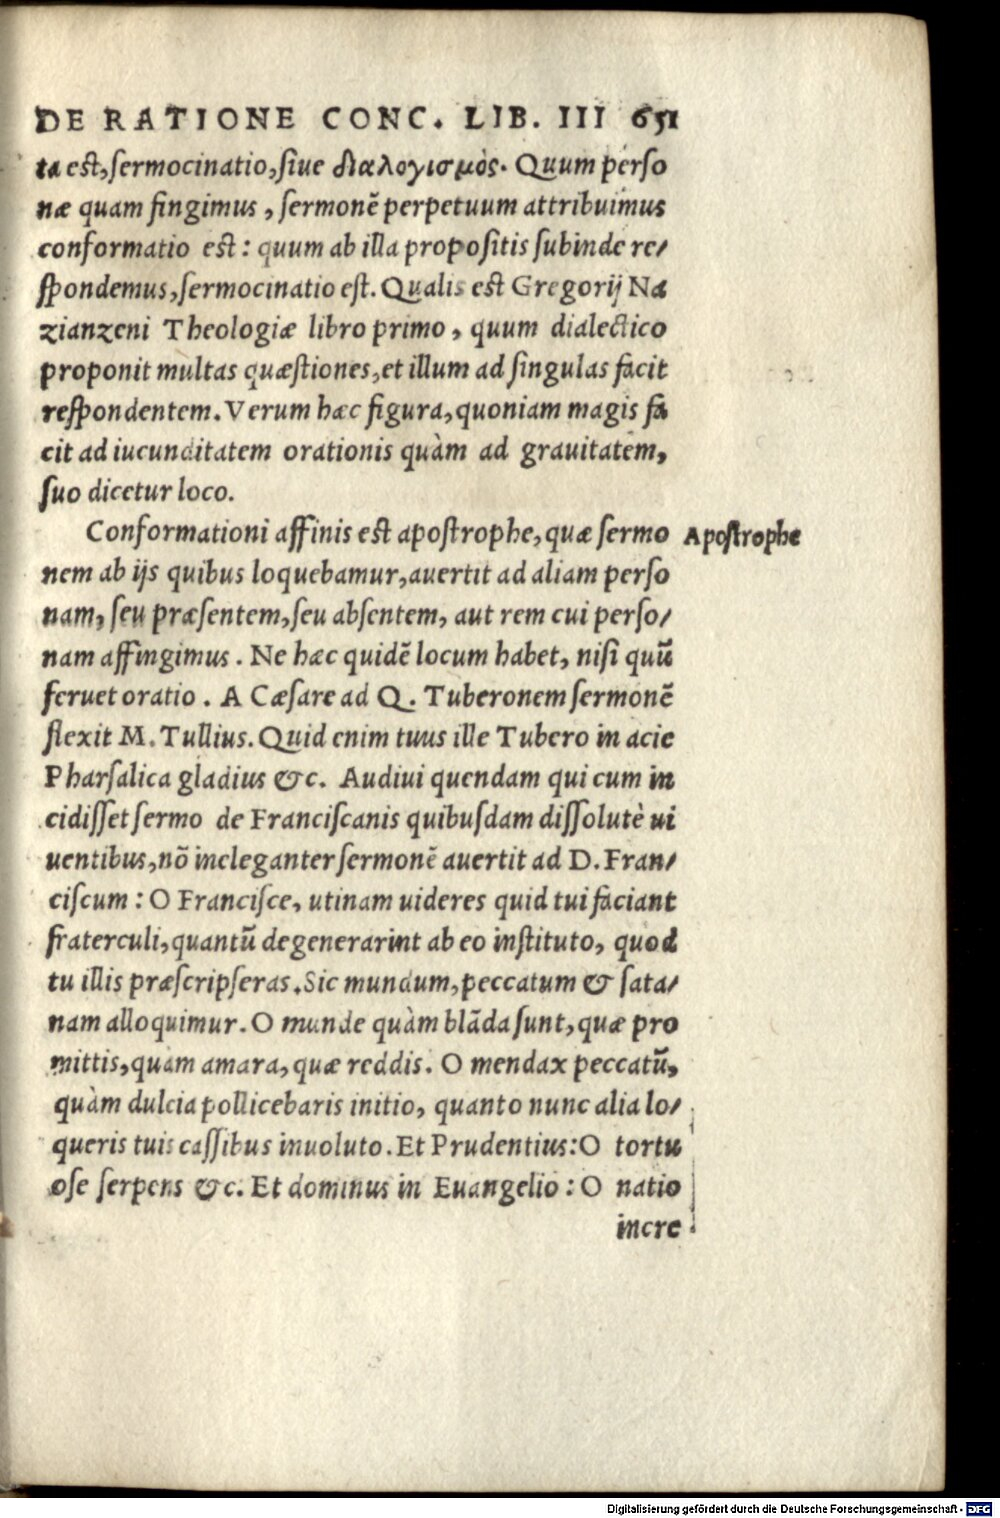 DE RATIONE CONC. LIB. III 651
ta est, sermocinatio, siue διαλογισμὸς. Quum perso
næ quam fingimus, sermonē perpetuum attribuimus
conformatio est: quum ab illa propositis subinde re/
spondemus, sermocinatio est. Qualis est Gregorij Na
zianzeni Theologiæ libro primo, quum dialectico
proponit multas quæstiones, et illum ad singulas facit
respondentem. Verum hæc figura, quoniam magis fa
cit ad iucunditatem orationis quàm ad grauitatem,
suo dicetur loco.
Conformationi affinis est apostrophe, quæ sermo
Apostrophe
nem ab ijs quibus loquebamur, auertit ad aliam perso
nam, seu præsentem, seu absentem, aut rem cui perso/
nam affingimus. Ne hæc quidē locum habet, nisi quū
feruet oratio. A Cæsare ad Q. Tuberonem sermonē
flexit M. Tullius. Quid enim tuus ille Tubero in acie
Pharsalica gladius &c. Audiui quendam qui cum in
cidisset sermo de Franciscanis quibusdam dissolutè ui
uentibus, nō ineleganter sermonē auertit ad D. Fran/
ciscum: O Francisce, utinam uideres quid tui faciant
fraterculi, quantū degenerarint ab eo instituto, quod
tu illis præscripseras. Sic mundum, peccatum & sata/
nam alloquimur. O munde quàm blāda sunt, quæ pro
mittis, quam amara, quæ reddis. O mendax peccatū,
quàm dulcia pollicebaris initio, quanto nunc alia lo/
queris tuis cassibus inuoluto. Et Prudentius: O tortu
ose serpens &c. Et dominus in Euangelio: O natio
incre
Digitalisierung gefördert durch die Deutsche Forschungsgemeinschaft - DFG